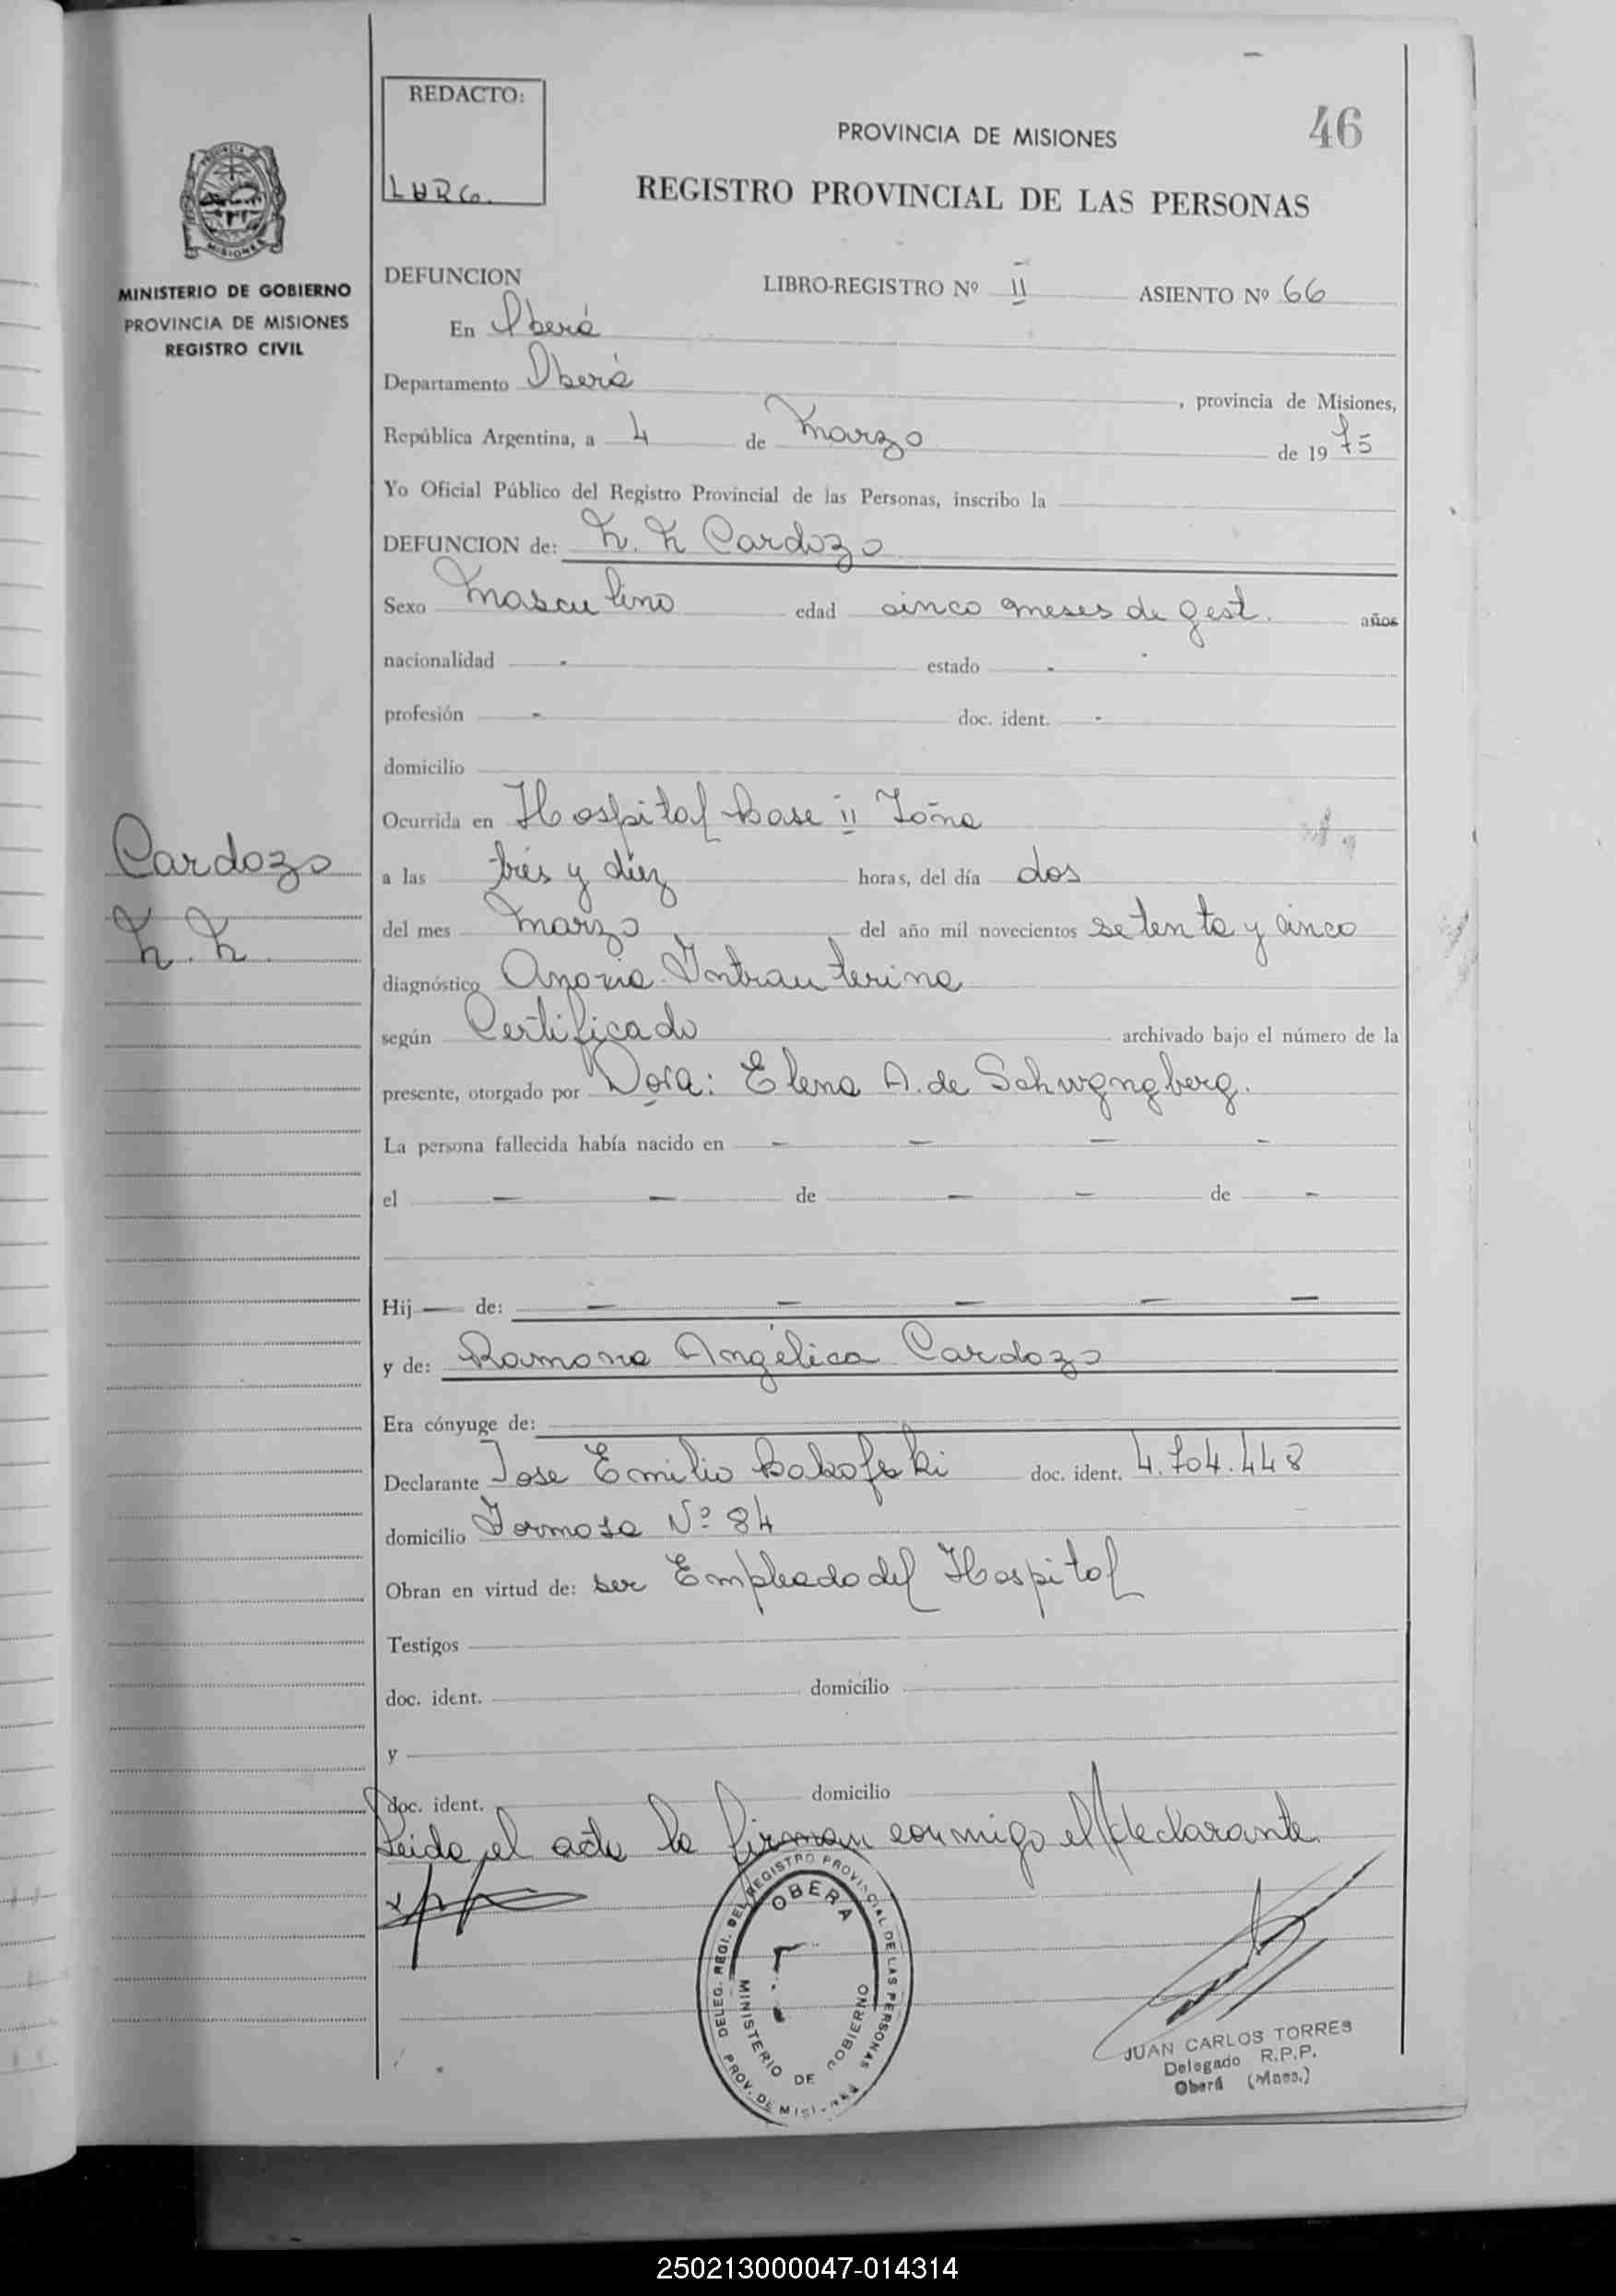 REDACTO:
PROVINCIA DE MISIONES
46
REGISTRO PROVINCIAL DE LAS PERSONAS
MINISTERIO DE GOBIERNO
PROVINCIA DE MISIONES
REGISTRO CIVIL
DEFUNCION LIBRO-REGISTRO Nº II ASIENTO Nº 66
En Oberá
Departamento Oberá, provincia de Misiones,
República Argentina, a 4 de Marzo de 1975
Yo Oficial Público del Registro Provincial de las Personas, inscribo la
DEFUNCION de: N. N Cardozo
Sexo Masculino edad cinco meses de gest. años
nacionalidad - estado -
profesión - doc. ident. -
domicilio
Ocurrida en Hospital Base II Zona
Cardozo
N. N.
a las tres y diez horas, del día dos
del mes Marzo del año mil novecientos setenta y cinco
diagnóstico Anoxia Intrauterina
según Certificado archivado bajo el número de la
presente, otorgado por Dora: Elena A. de Schwgngberg.
La persona fallecida había nacido en - - - -
el - - de - - de -
Hij — de: - - - - -
y de: Ramona Angélica Cardozo
Era cónyuge de:
Declarante Jose Emilio doc. ident. 4.704.448
domicilio Formosa Nº 84
Obran en virtud de: ser Empleado del Hospital
Testigos
doc. ident. domicilio
y
doc. ident. domicilio
Leida el acta la firman conmigo el declarante
DELEG. REGI. DEL REGISTRO PROVINCIAL DE LAS PERSONAS
OBERA
MINISTERIO DE GOBIERNO
PROV. DE MISIONES
JUAN CARLOS TORRES
Delegado R.P.P.
Oberá (Mnes.)
250213000047-014314